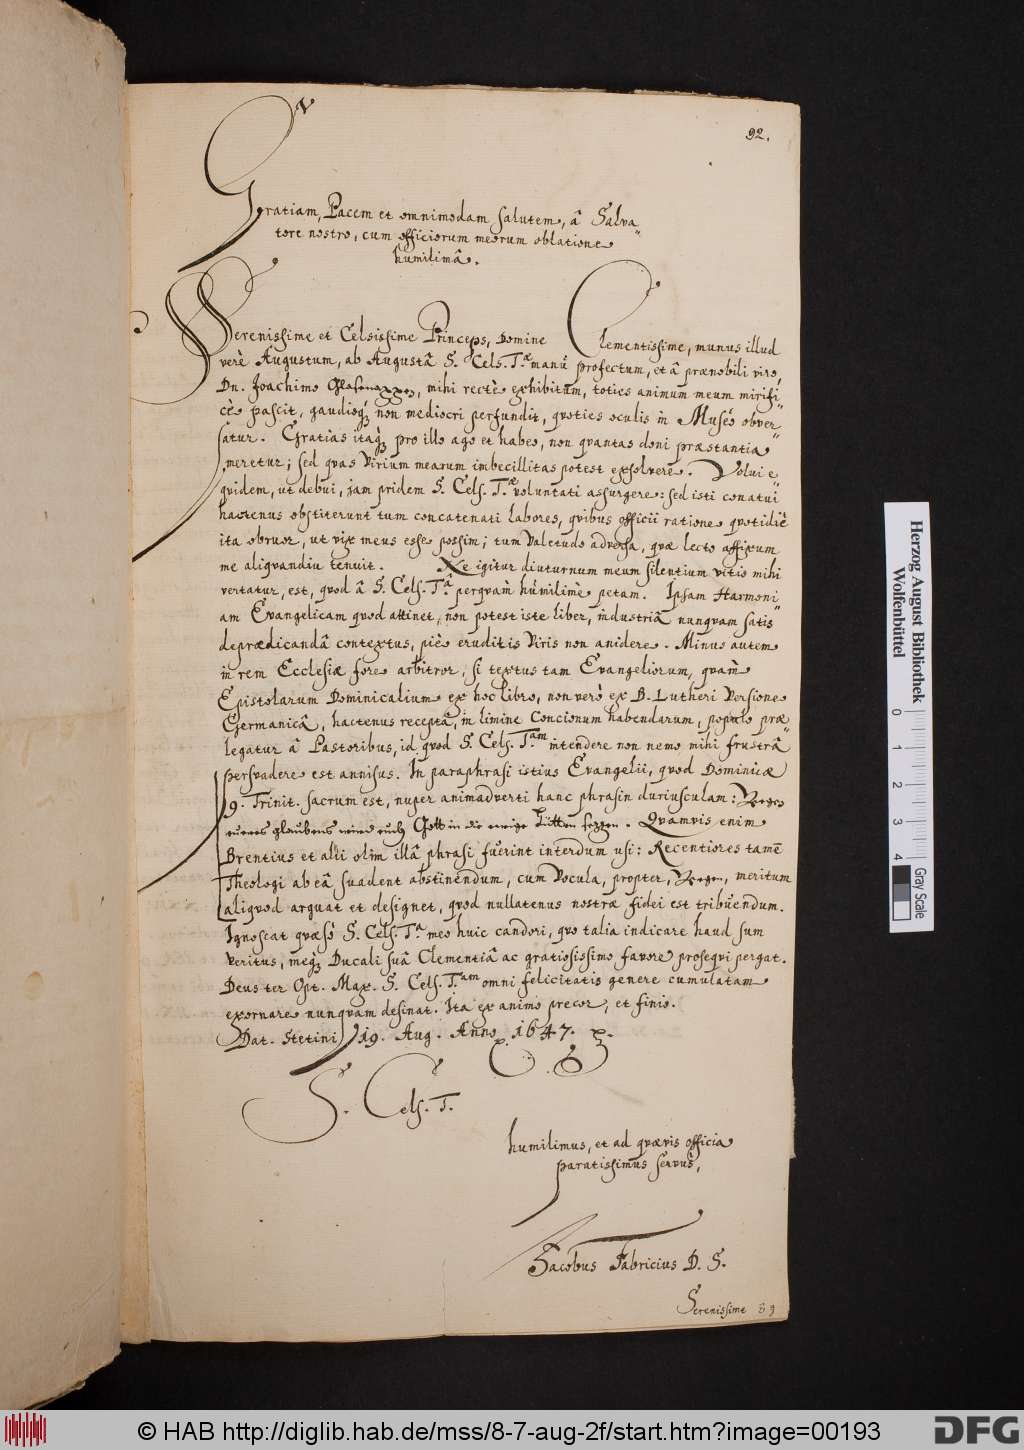 92.
Gratiam, Pacem et omnimodam Salutem, â Salva„
tore nostro, cum officiorum meorum oblatione
humilimâ.
Serenissime et Celsissime Princeps, Domine Clementissime, munus illud
verè Augustum, ab Augustâ S. Cels. Tæ manu profectum, et â prænobili viro,
Dn. Joachimo Glasenappen, mihi rectè exhibitum, toties animum meum mirifi„
cè pascit, gaudioq́; non mediocri perfundit, qvoties oculis in Muséo obver„
satur. Gratias itaq́; pro illo ago et habeo, non qvantas doni præstantia
meretur; sed qvas Virium mearum imbecillitas potest exsolvere. Volui e„
qvidem, ut debui, jam pridem S. Cels. Tæ voluntati assurgere: sed isti conatui
hactenus obstiterunt tum concatenati labores, qvibus officii ratione qvotidiè
ita obruor, ut vix meus esse possim; tum Valetudo adversa, qvæ lecto affixum
me aliqvandiu tenuit. Ne igitur diuturnum meum silentium vitio mihi
vertatur, est, qvod â S. Cels. Tâ perqvàm húmilimè petam. Ipsam Harmoni„
am Evangelicam qvod attinet, non potest iste liber, industriâ nunqvam satis
deprædicandâ contextus, piè eruditis Viris non arridere. Minus autem
in rem Ecclesiæ fore arbitror, si textus tam Evangeliorum, qvàm
Epistolarum Dominicalium ex hoc libro, non verò ex B. Lutheri Versione
Germanicâ, hactenus receptâ, in limine Concionum habendarum, populo præ„
legatur â Pastoribus, id qvod S. Cels. Tam intendere non nemo mihi frustrâ
persvadere est annisus. In paraphrasi istius Evangelii, qvod Dominicæ
9. Trinit. sacrum est, nuper animadverti hanc phrasin duriusculam: Wegen
eueres glaubens wird euch Gott in die ewige Hütten setzen. Qvamvis enim
Brentius et alii olim illâ phrasi fuerint interdum usi: Recentiores tamē
Theologi ab eâ svadent abstinendum, cum Vocula, propter, Wegen, meritum
aliqvod arguat et designet, qvod nullatenus nostræ fidei est tribuendum.
Ignoscat qvæso S. Cels. Ta meo huic candori, qvo talia indicare haud sum
veritus, meq́; Ducali suâ Clementiâ ac gratiosissimo favore proseqvi pergat.
Deus ter Opt. Max. S. Cels. Tam omni felicitatis genere cumulatam
exornare nunqvam desinat. Ita ex animo precor, et finio.
Dat. Stetini 19. Aug. Anno 1647.
S. Cels. T.
humilimus, et ad qvævis officia
paratissimus servus,
Jacobus Fabricius D. S.
Serenissime 89
Herzog August Bibliothek
Wolfenbüttel
0 1 2 3 4
Gray Scale
© HAB http://diglib.hab.de/mss/8-7-aug-2f/start.htm?image=00193
DFG